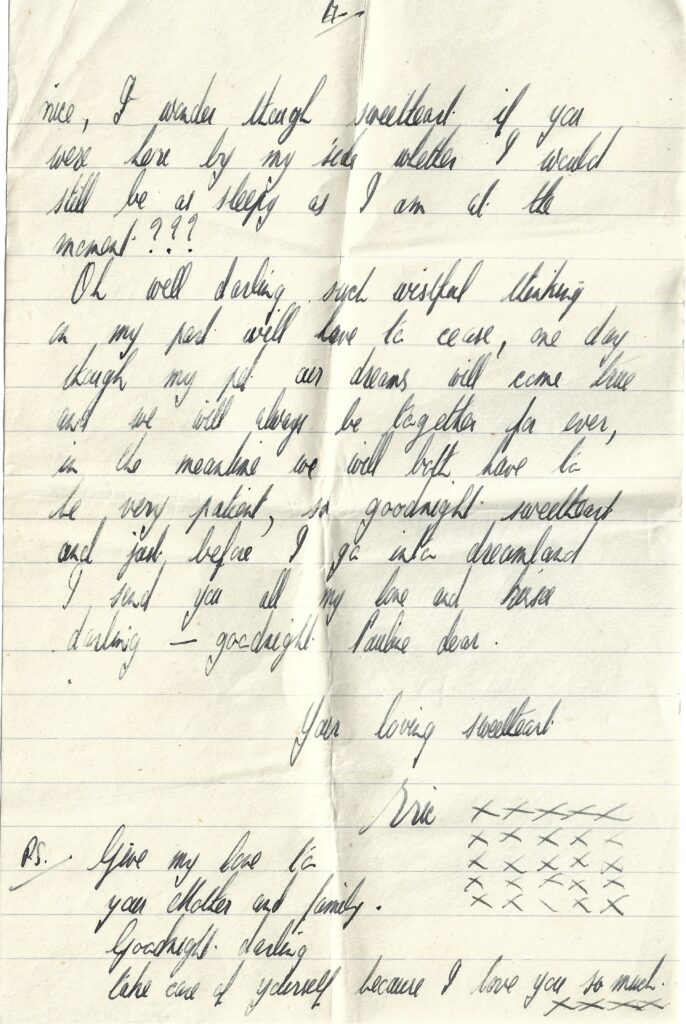 nice, I wonder though sweetheart if you
were here by my side whether I would
still be as sleepy as I am at the
moment???
Oh well darling such wistful thinking
on my part will have to cease, one day
though my pet our dreams will come true
and we will always be together for ever,
in the meantime we will both have to
be very patient, so goodnight sweetheart
and just before I go into dreamland
I send you all my love and
darling — goodnight Pauline dear.
Your loving sweetheart
Eric xxxxx
xxxxx
xxxxx
xxxxx
xxxxx
P.S. Give my love to
your Mother and family.
Goodnight darling
take care of yourself because I love you so much.
xxxx